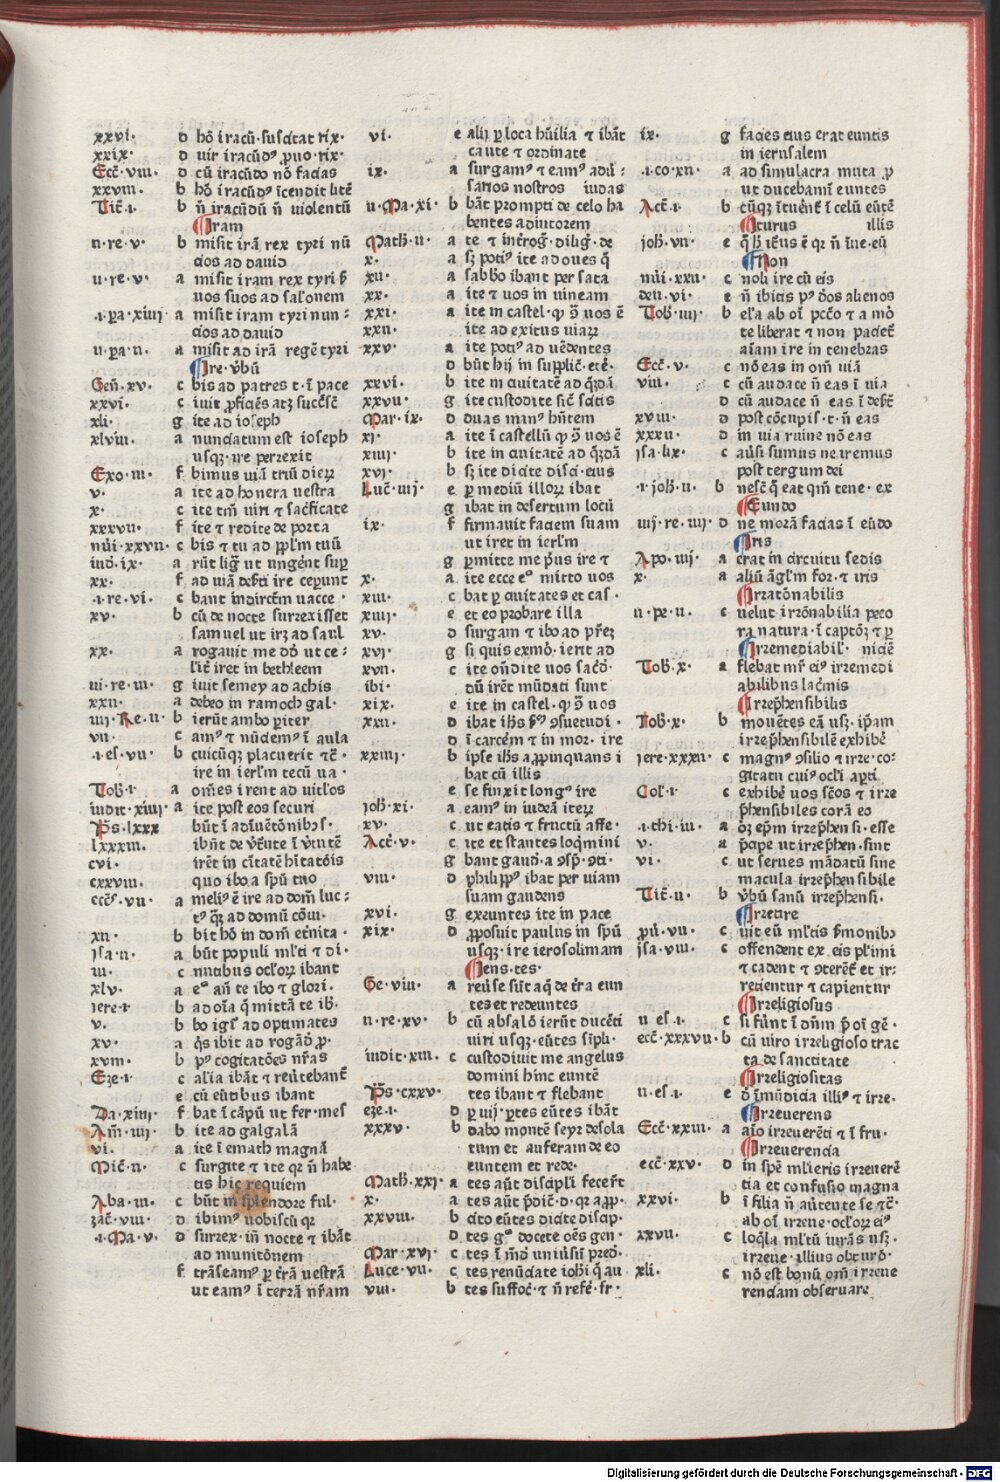 xxvi· d hō iracū·suscitat rix·
xxix· d vir iracūdꝰ ꝓuo·rix·
Ecc̄·viii· d cū iracūdo nō facias
xxviii· b hō iracūdꝰ īcendit litē
Tit̄·i· b n̄ iracūdū n̄ violentū
Iram
ii·re·v· b misit irā rex tyri nū
cios ad dauid
ii·re·v· a misit iram rex tyri
uos suos ad salōnem
·i·pa·xiiij· a misit iram tyri nun-
cios ad dauid
ii·pa·ii· a misit ad irā regē tyri
Ire·v̄bū
Gen̄·xv· c bis ad patres t·ī pace
xxvi· c iuit ꝓficiēs atꝫ succēsc̄
xli· g ite ad ioseph
xlviii· a nunciatum est ioseph
usqꝫ·ire perrexit
Exo·iii· f bimus uiā triū dieꝝ
v· a ite ad honera uestra
x· c ite tm̄ uiri ⁊ sac̄ficate
xxxvii· f ite ⁊ redite de porta
nūi·xxvii· c bis ⁊ tu ad pplm̄ tuū
iud·ix· a rūt lig̅ ut ungēnt suꝑ
xx· f ad uiā dexti ire ceperunt
·i·re·vi· c bant indircēm uacce·
xv· b cū de nocte surrexisset
samuel ut irꝫ ad saul
xx· a rogauit me dō ut ce-
lit̄ iret in bethleem
iii·re·iii· g iuit semey ad achis
xxii· a debeo in ramoch gal·
iiij·Re·ii· b ierūt ambo ꝑiter
vii· c amꝰ ⁊ nūdemꝰ ī aula
·i·es·vii· b cuicūqꝫ placuerit ⁊c̄·
ire in ierlm̄ tecū ua·
Tob·i· a om̄es irent ad uitlos
iudit·xiiij· a ite post eos securi
Ps̄·lxxx būt ī adīuētōnibꝫ s·
lxxxiii· ibūt de v̄tute ī v̄tutē
cvi· irēt in citatē hītatōis
cxxviii· quo ibo a spū tuo
ecc̄s·vii· a meliꝰ ē ire ad dom̄ luc-
tꝰ qꝫ ad domū cōui·
xii· b bit hō in dom̄ et̄nita·
isa·ii· a būt populi ml̄ti ⁊ di·
iii· c nutibus oclōꝝ ibant
xlv· a eº an̄ te ibo ⁊ glori·
iere·i· b ad oīa q̄ mittā te ib̄·
v· b bo igꝰ ad optimates
xv· a q̄s ibit ad rogādꝰ ꝓ·
xviii· b pꝰ cogitatōes nr̄as
Eze·i· c alia ibāt ⁊ reūtebant̄
e cū eūtibus ibant
Da·xiij· f bat ī cāpū ut fer·mes
Am̄·iiij· b ite ad galgalā
vi· a ite ī emath magnā
Mic̄·ii· c surgite ⁊ ite qꝛ n̄ habe
tis hic requiem
Aba·iii· c būt in splendore ful·
zac̄·viii· d ibimꝰ uobiscū qꝛ
·i·Ma·v· d surrex·in̄ nocte ⁊ ibāt
ad munitōnem
f trāseamꝰ ꝑ t̄rā uestrā
ut eamꝰ ī terrā nr̄am
vi· e alij ꝑ loca hūilia ⁊ ibāt
caute ⁊ ordinate
ix· a surgamꝰ ⁊ eamꝰ adū-
sarios nostros iudas
ii·Ma·xi· b bāt prompti de celo ha
bentes adiutorem
Math·ii· a te ⁊ int̄rog̅·dilig̅·de
x· a sꝫ potiꝰ ite ad oues q̄
xii· a sabbō ibant per sata
xx· a ite ⁊ uos in uineam
xxi· a ite in castel·qͦ ɔ̄ uos ē
xxii· ite ad exitus uiaꝝ
xxv· a ite potiꝰ ad uēdentes
d būt hij in supplic̄·etē·
xxvi· b ite in ciuitatē ad q̄dā
xxvii· g ite custodite sic̄ scitis
Mar·ix· d duas manꝰ hn̄tem
xi· a ite ī castellū qͦ ɔ̄ uos ē
xiiij· b ite in ciuitatē ad q̄dā
xvi· b sꝫ ite dicite disci·eius
Luc̄·iiij· e ꝑ mediū illoꝝ ibat
g ibat in desertum locū
ix· f firmauit faciem suam
ut iret in ierlm̄
g ꝑmitte me pⁱus ire ⁊
x· a ite ecce eº mitto uos
xiii· c bat ꝑ ciuitates et cas·
xiiij· e et eo probare illa
xv· d surgam ⁊ ibo ad pr̄eꝫ
xvi· g si quis exmō·ierit ad
xvii· c ite on̄dite uos sacd̄·
ibi· dū irēt mūdati sunt
xix· e ite in castel·qͦ ɔ̄ uos
xxii· d ibat ih̄s sꝰ ɔsuetudi·
d ī carcēm ⁊ in mor·ire
xxiiij· b ipse ih̄s aꝓpinquans i
bat cū illis
e se finxit longꝰ ire
Joh·xi· a eamꝰ in iudeā iteꝝ
xv· c ut eatis ⁊ fructū affe·
Act̄·v· c ite et stantes loqͥmini
g bant gaud̄·a ɔsp̄·ɔti·
viii· d philippꝰ ibat per uiam
suam gaudens
xvi· g exeuntes ite in pace
xix· d ꝓposuit paulus in spū
usqꝫ·ire ierosolimam
Iens·tes·
Ge·viii· a reūse sūt aq̄ de t̄ra eun
tes et redeuntes
ii·re·xv· b cū absalō ierūt ducēti
uiri usqꝫ·eūtes sīpli·
iudit·xiii· c custodiuit me angelus
domini hinc euntē
Ps̄·cxxv· tes ibant ⁊ flebant
eze·i· d ꝑ iiij·ꝑtes eūtes ibāt
xxxv· b dabo montē seyr desola
tum et auferam de eo
euntem et rede·
Math·xxi· a tes aūt discipli fecer̄t
x· a tes aūt p̄dic̄·d·qꝛ aꝓp·
xxviii· b cito eūtes dicite discip·
d tes gº docete oēs gen·
Mar·xvi· c tes ī mō uniusū pred·
Luce·vii· c tes renūciate iohi q̄ au
viii· b tes suffoc̄·⁊ n̄ refe·fr·
ix· g facies eius erat euntis
in ierusalem
·i·co·xii· a ad simulacra muta ꝓ
ut ducebamī euntes
Act̄·i· b cūqꝫ ītuēnt̄ ī celū eūtē
Iturus illis
Joh·vii· e q̄ h̄ itūs ē qꝛ n̄ īue·eū
Non
nūi·xxii· c noli ire cū eis
deu·vi· e n̄ ibitis pꝰ dōs alienos
Tob·iiij· b el'a ab oī pcc̄o ⁊ a mō
te liberat ⁊ non paciet̄
aīam ire in tenebras
Ecc̄·v· c nō eas in om̄ uiā
viii· c cū audace n̄ eas ī uia
d cū audace n̄ eas ī desc̄t
xviii· d post cōcupis·t·n̄ eas
xxxii· d in uia ruine nō eas
isa·lix· c auⁱsi sumus ne iremus
post tergum dei
·i·joh·ii· b nesc̄ q̄ eat qm̄ tene·ex
Eundo
iiij·re·iiij· d ne morā facias ī eūdo
Iris
Apo·iiij· a erat in circuitu sedis
x· a aliū āglm̄ for·⁊ iris
Irratōnabilis
ii·pe·ii· c uelut irrōnabilia peco
ra natura·ī captōꝫ ⁊ ꝑ
Irremediabil̄· niciē
Tob·x· a flebat mr̄ eiꝰ irremedi
abilibus lac̄mis
Irrep̄hensibilis
Tob·x· b mouētes eā usꝫ·ip̄am
irrep̄hensibilē exhibē
iere·xxxii· c magnꝰ ɔsilio ⁊ irre·co-
gitatu cuiꝰ ocli aꝑti
Col̄·i· c exhibē uos scōs ⁊ irre
p̄hensibiles corā eo
·i·thi·iii· a oꝫ epm̄ irrep̄hensi·esse
v· a p̄cipe ut irrep̄hen·sint
vi· c ut serues mādatū sine
macula irrep̄hensibile
Tit̄·ii· b v̄bū sanū irrep̄hensi·
Irretire
pū·vii· c uit eū ml̄tis s̄monibꝫ
isa·viii· c offendent ex·eis pl̄imi
⁊ cadent ⁊ ɔterēt̄ et ir-
retientur ⁊ capientur
Irreligiosus
ii·es·i· c si sūnt ī dn̄m p̄ oī gē·
ecc̄·xxxvii· b cū uiro irreligioso trac
ta de sanctitate
Irreligiositas
ii·es·i· e d īmūdicia illiꝰ ⁊ irre·
Irreuerens
Ecc̄·xxiii· a aīo irreuerēti ⁊ ī fru·
Irreuerencia
ecc̄·xxv· d in spē ml̄ieris irreuerē
tia et confusio magna
xxvi· b ī filia n̄ aūtente se ⁊c̄·
ab oī irreue·ocloꝝ eiꝰ
xxvii· c loq̄la ml̄tū iurās usꝫ·
irreue·illius obturō·
xli· c nō est bonū om̄ irreue
renciam obseruare
Digitalisierung gefördert durch die Deutsche Forschungsgemeinschaft - DFG